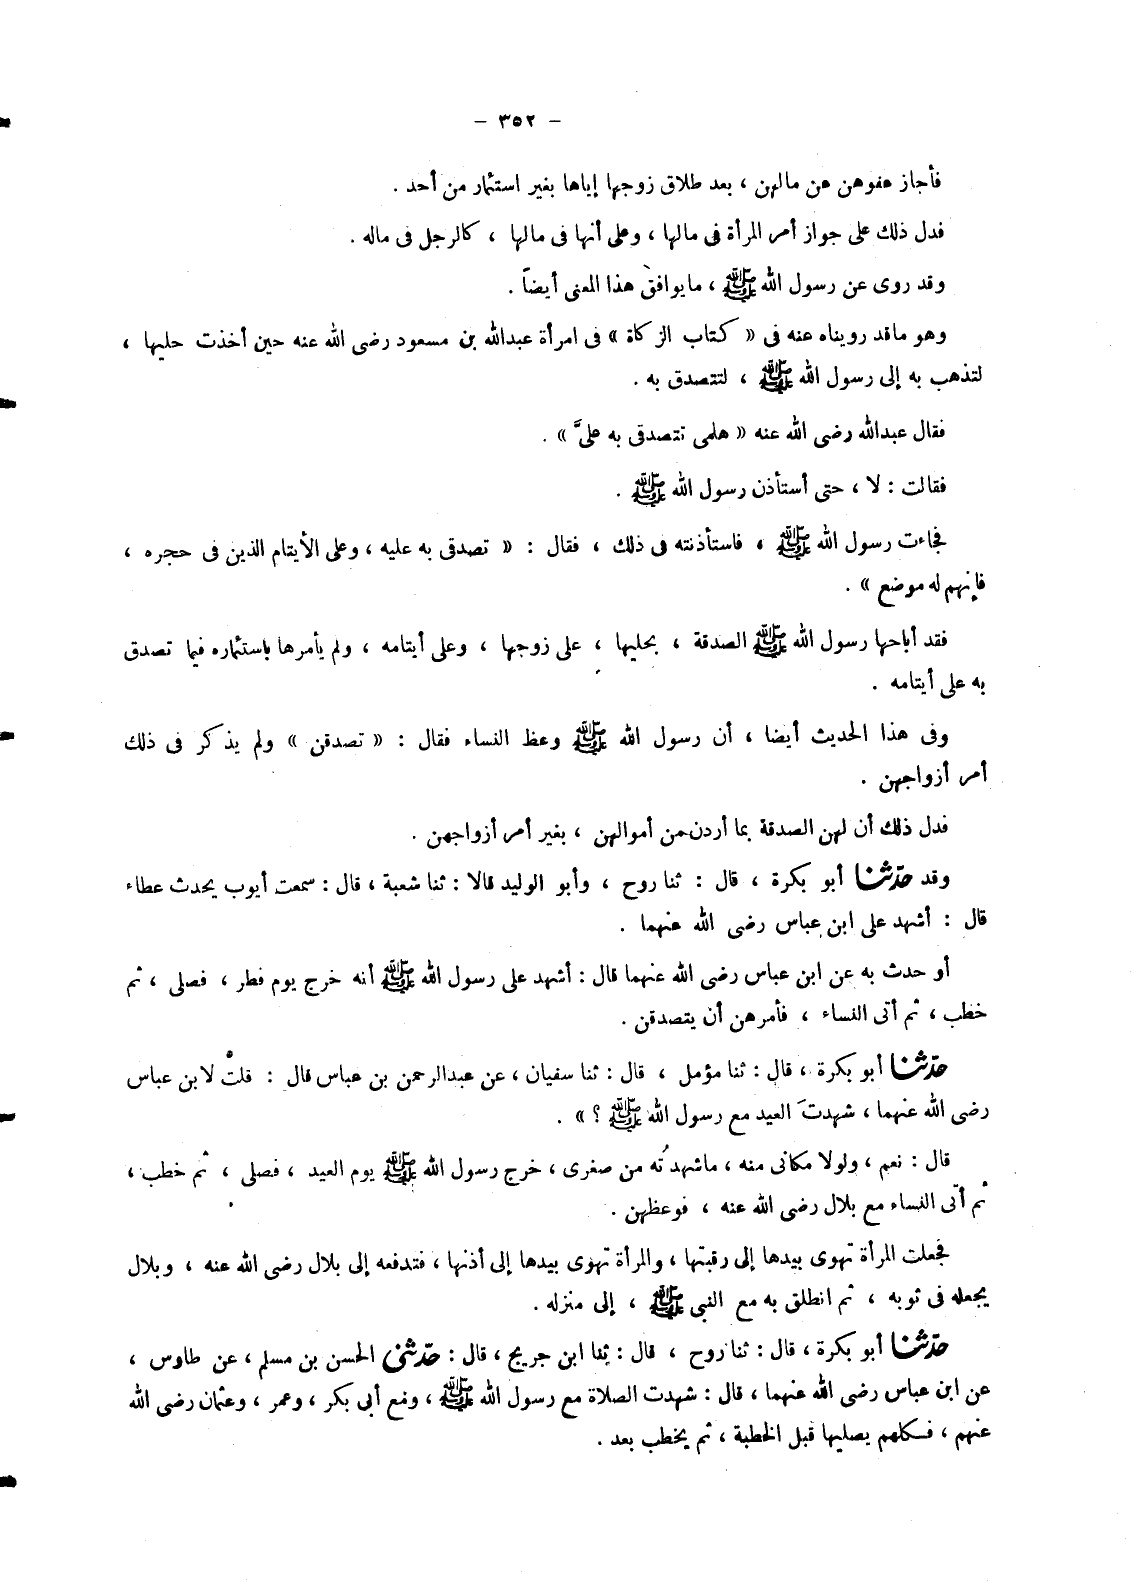 — ٣٥٢ —
فأجاز عفوهن عن مالهن ، بعد طلاق زوجها إياها بغير استئمار من أحد .
فدل ذلك على جواز أمر المرأة فى مالها ، وعلى أنها فى مالها ، كالرجل فى ماله .
وقد روى عن رسول الله ﷺ ، ما يوافق هذا المعنى أيضاً .
وهو ماقد رويناه عنه فى « كتاب الزكاة » فى امرأة عبدالله بن مسعود رضى الله عنه حين أخذت حليها ،
لتذهب به إلى رسول الله ﷺ ، لتتصدق به .
فقال عبدالله رضى الله عنه « هلمى تتصدقى به علىَّ » .
فقالت : لا ، حتى أستأذن رسول الله ﷺ .
فجاءت رسول الله ﷺ ، فاستأذنته فى ذلك ، فقال : « تصدقى به عليه ، وعلى الأيتام الذين فى حجره ،
فإنهم له موضع » .
فقد أباحها رسول الله ﷺ الصدقة ، بحليها ، على زوجها ، وعلى أيتامه ، ولم يأمرها باستئماره فيما تصدق
به على أيتامه .
وفى هذا الحديث أيضا ، أن رسول الله ﷺ وعظ النساء فقال : « تصدقن » ولم يذكر فى ذلك
أمر أزواجهن .
فدل ذلك أن لهن الصدقة بما أردن من أموالهن ، بغير أمر أزواجهن .
وقد حدّثنا أبو بكرة ، قال : ثنا روح ، وأبو الوليد قالا : ثنا شعبة ، قال : سمعت أيوب يحدث عطاء
قال : أشهد على ابن عباس رضى الله عنهما .
أو حدث به عن ابن عباس رضى الله عنهما قال : أشهد على رسول الله ﷺ أنه خرج يوم فطر ، فصلى ، ثم
خطب ، ثم أتى النساء ، فأمرهن أن يتصدقن .
حدّثنا أبو بكرة ، قال : ثنا مؤمل ، قال : ثنا سفيان ، عن عبدالرحمن بن عباس قال : قلتُ لابن عباس
رضى الله عنهما ، شهدتَ العيد مع رسول الله ﷺ ؟ » .
قال : نعم ، ولولا مكانى منه ، ماشهدتُه من صغرى ، خرج رسول الله ﷺ يوم العيد ، فصلى ، ثم خطب ،
ثم أتى النساء مع بلال رضى الله عنه ، فوعظهن .
فجعلت المرأة تهوى بيدها إلى رقبتها ، والمرأة تهوى بيدها إلى أذنها ، فتدفعه إلى بلال رضى الله عنه ، وبلال
يجعله فى ثوبه ، ثم انطلق به مع النبى ﷺ ، إلى منزله .
حدّثنا أبو بكرة ، قال : ثنا روح ، قال : ثنا ابن جريج ، قال : حدّثنى الحسن بن مسلم ، عن طاوس ،
عن ابن عباس رضى الله عنهما ، قال : شهدت الصلاة مع رسول الله ﷺ ، ومع أبى بكر ، وعمر ، وعثمان رضى الله
عنهم ، فكلهم يصليها قبل الخطبة ، ثم يخطب بعد .